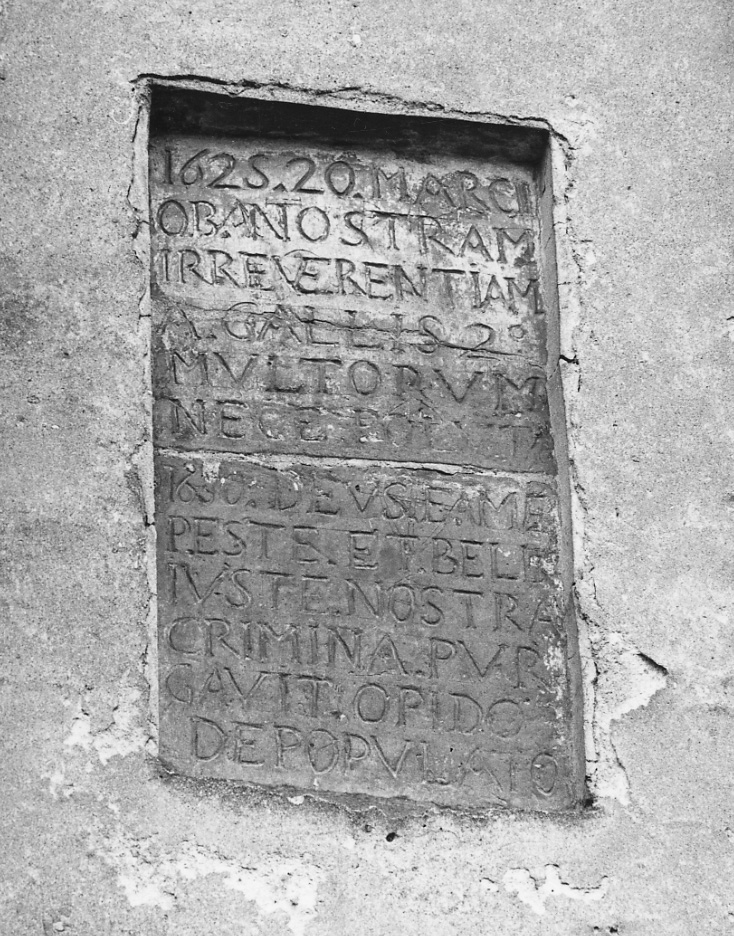 1625.20.MARCII
OB.A.NOSTRAM
IRREVERENTIAM
A.GALLIS.2º
MVLTORVM
NECE
1630.DEVS.E.AME
PESTE.ET.BELE
IVSTE.NOSTRA
CRIMINA.PVR
GAVIT.OPIDO
DEPOPVLATO